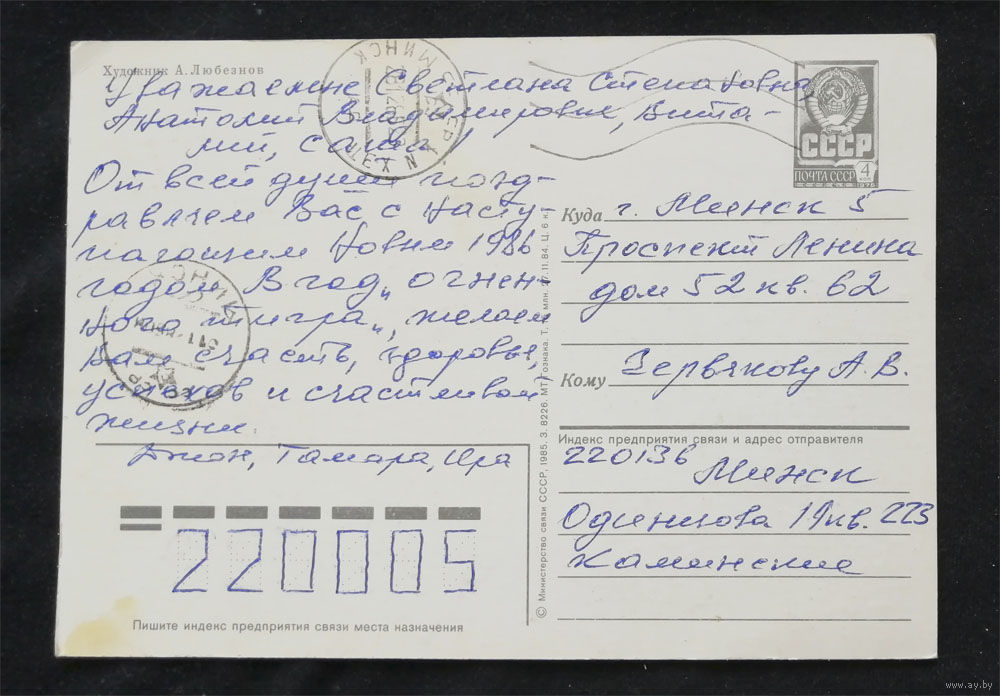 Художник А. Любезнов
Уважаемые Светлана Степановна,
Анатолий Владимирович, Вита-
лий, Саша!
От всей души позд-
равляем Вас с насту-
пающим Новым 1986
годом. В год „огнен-
ного тигра„, желаем
вам счастья, здоровья,
успехов и счастливой
жизни.
Джон, Тамара, Ира
220005
Пишите индекс предприятия связи места назначения
© Министерство связи СССР, 1985. З. 8226. МТ Гознака. Т. млн. 27.11.84. Ц. 6 к.
МИНСК
СССР
ПОЧТА СССР
4 коп
1976
Куда г. Минск 5
Проспект Ленина
дом 52 кв. 62
Кому Червякову А. В.
Индекс предприятия связи и адрес отправителя
220136 Минск
Одинцова 19 кв. 223
Каминские
МИНСК
www.ay.by